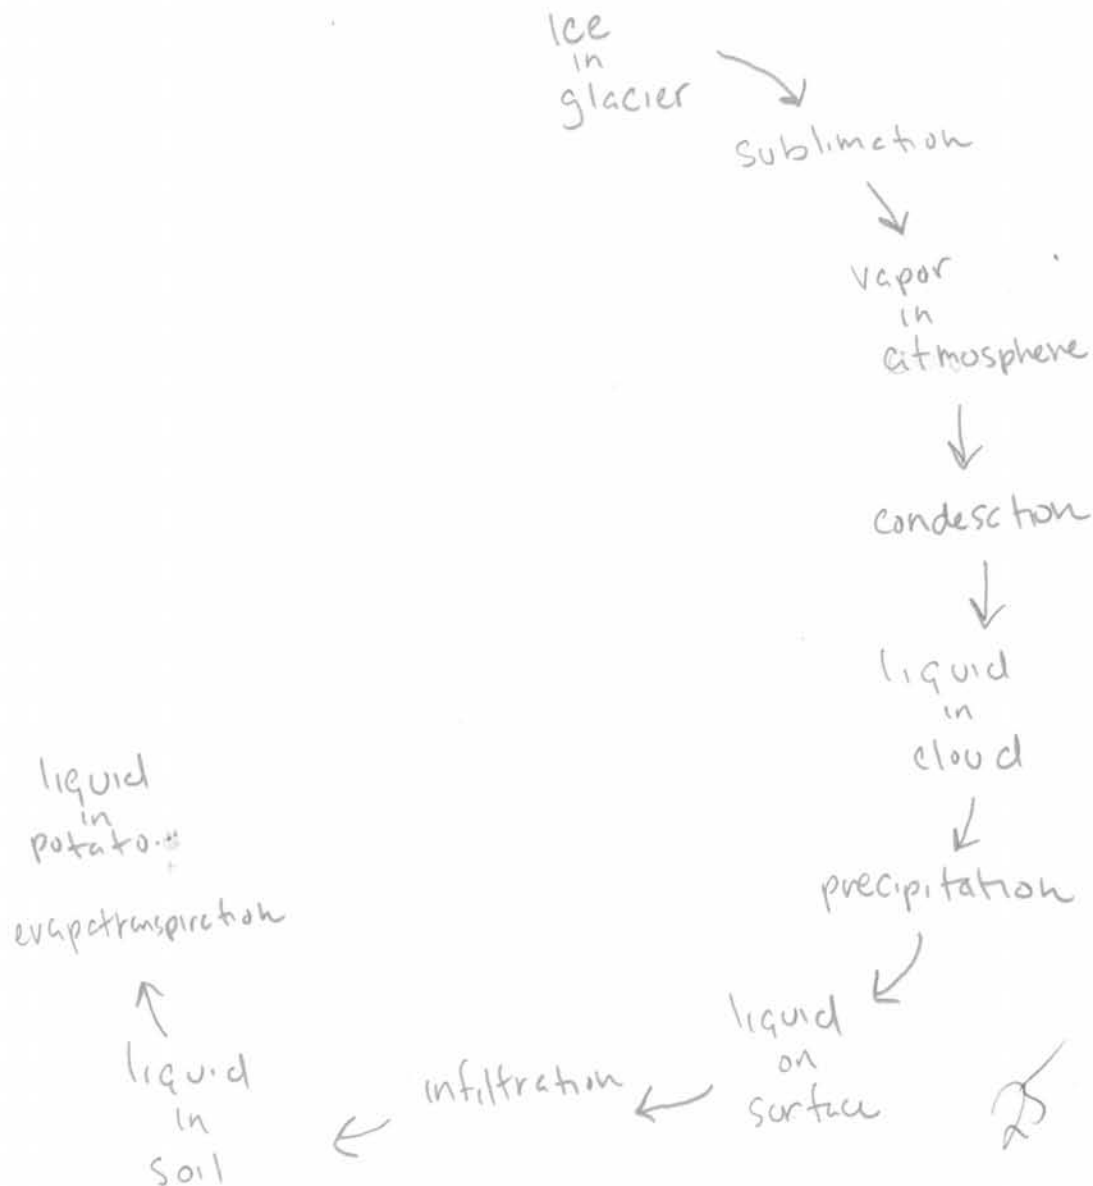 Ice
in
glacier
sublimation
vapor
in
atmosphere
condesation
liquid
in
cloud
precipitation
liquid
on
surface
infiltration
liquid
in
soil
evapotranspiration
liquid
in
potato
25